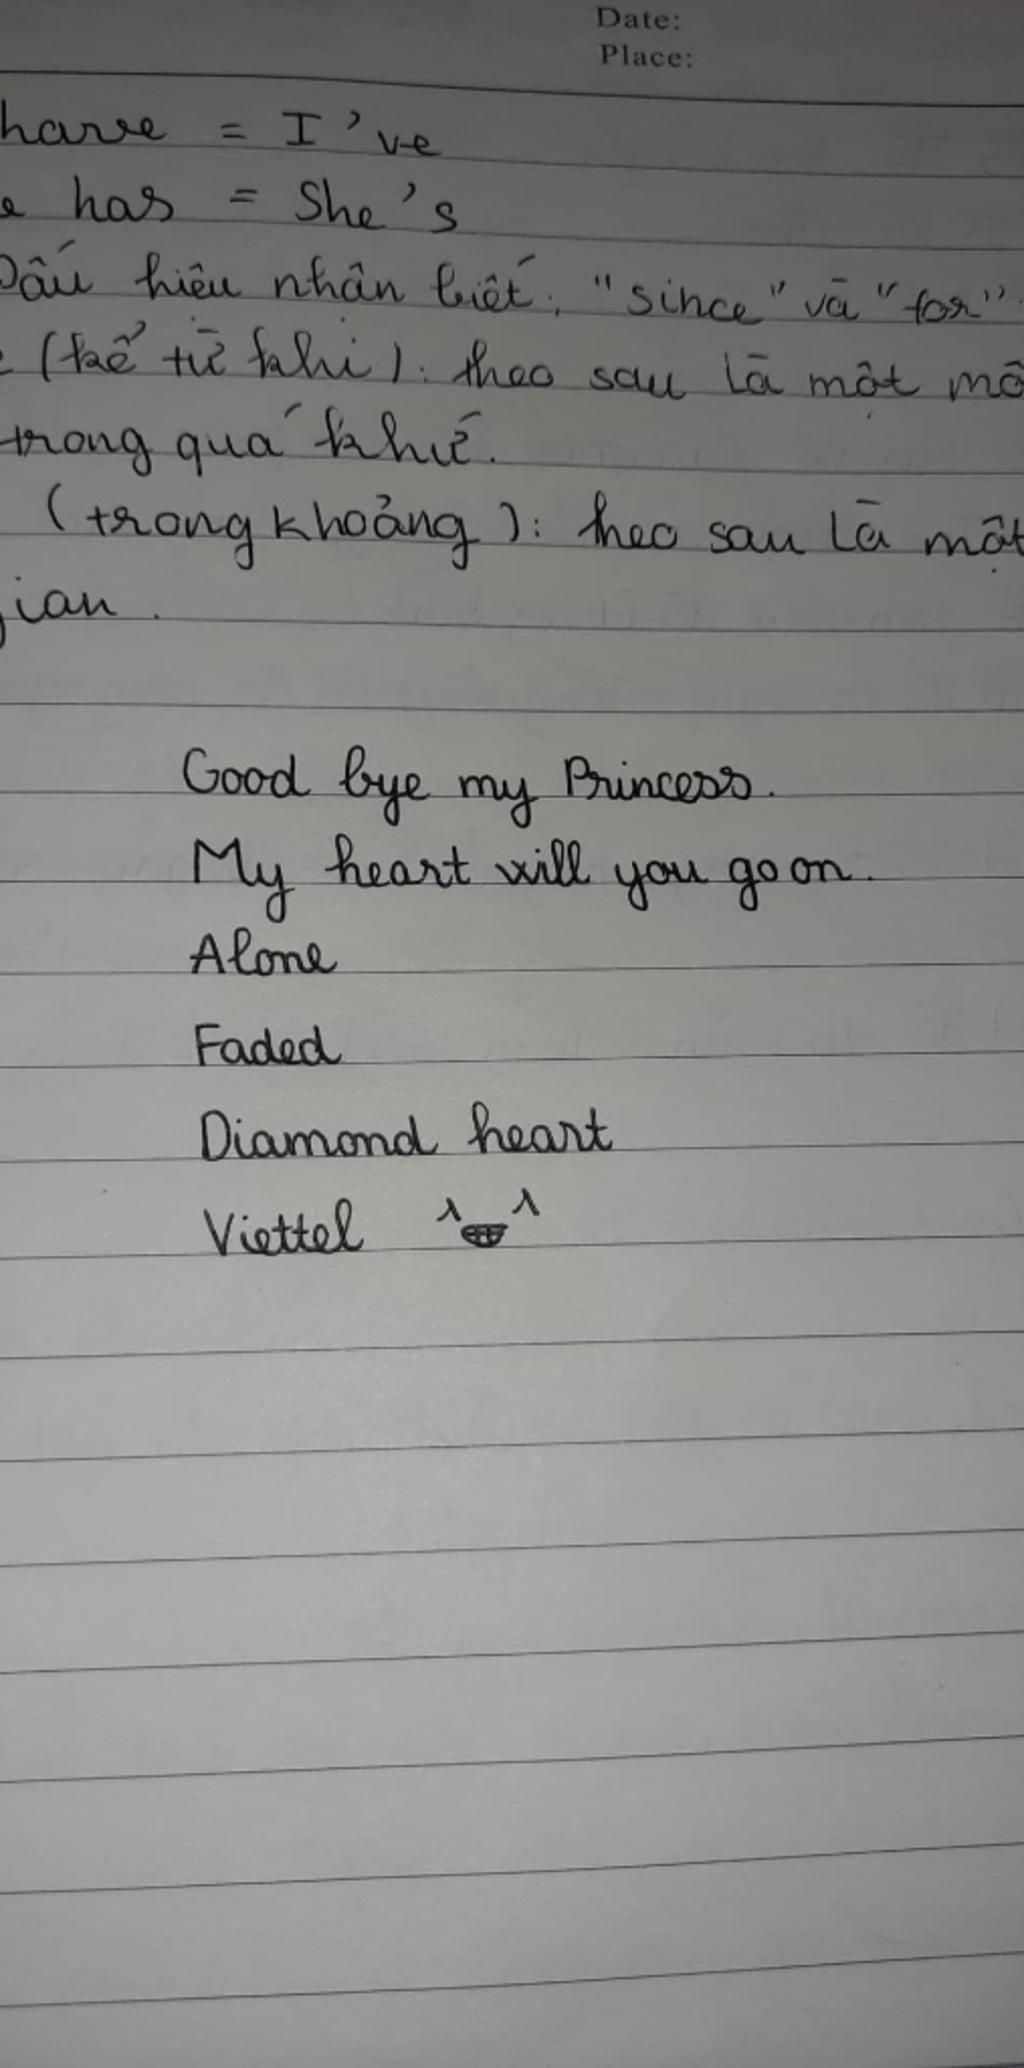 Date:
Place:
have = I've
has = She's
Dấu hiệu nhận biết: "since" và "for"
(kể từ khi): theo sau là một mô
trong quá khứ.
(trong khoảng): theo sau là một
gian.
Good bye my Princess.
My heart will you go on.
Alone
Faded
Diamond heart
Viettel